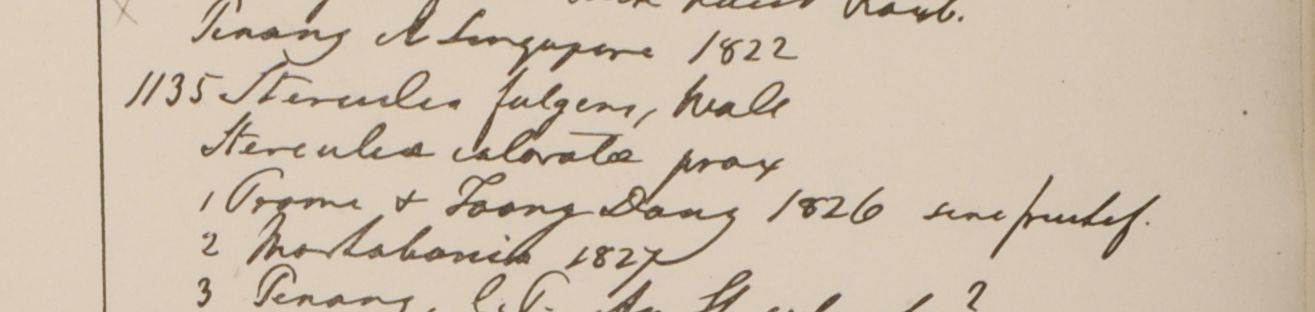 Roxb.
Penang et Singapore 1822
1135 Sterculia fulgens, Wall
Sterculiae coloratae prox
1 Prome & Toong Dong 1826 sine fructif.
2 Martabania 1827
3 Penang, ?